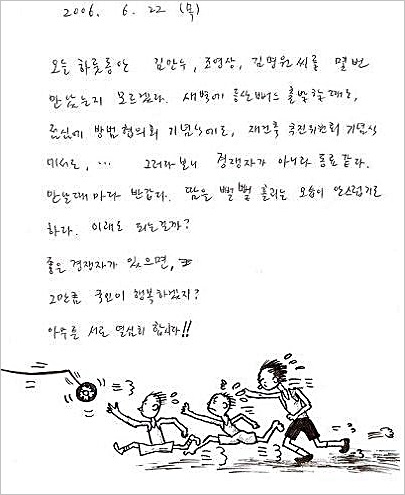 2006. 6. 22 (목)
오늘 하룻동안 김만수, 조영상, 김명원씨를 몇번
만났는지 모르겠다. 새벽에 등산버스 출발할때도,
점심에 방범협의회 기념식에도, 재건축 추진위원회 기념식
에서도, ... 그러다보니 경쟁자가 아니라 동료같다.
만날때마다 반갑다. 땀을 뻘뻘 흘리는 모습이 안스럽기도
하다. 이래도 되는걸까?
좋은 경쟁자가 있으면,
그만큼 국민이 행복하겠지?
아무튼 서로 열심히 합시다!!